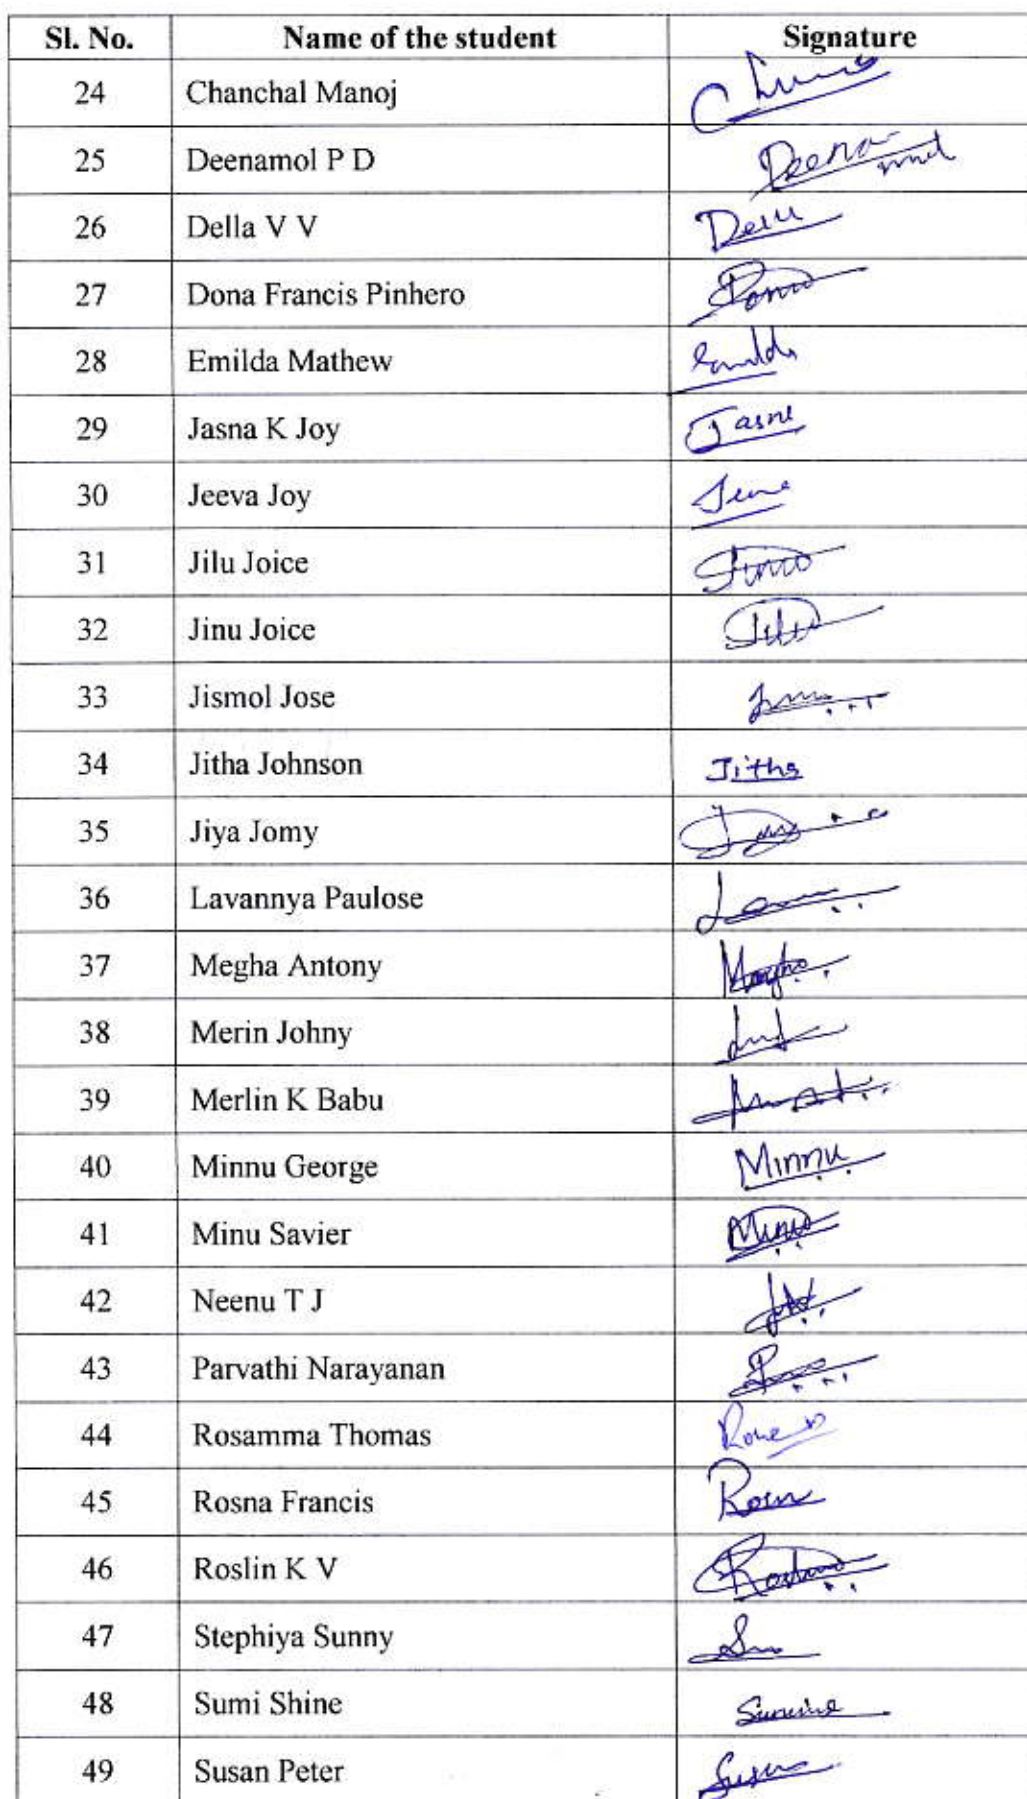 Sl. No. Name of the student Signature
24 Chanchal Manoj
25 Deenamol P D Deena mol
26 Della V V
27 Dona Francis Pinhero Dona
28 Emilda Mathew Emilda
29 Jasna K Joy Jasna
30 Jeeva Joy
31 Jilu Joice
32 Jinu Joice
33 Jismol Jose
34 Jitha Johnson Jitha
35 Jiya Jomy
36 Lavannya Paulose
37 Megha Antony Megha
38 Merin Johny
39 Merlin K Babu
40 Minnu George Minnu
41 Minu Savier Minu
42 Neenu T J
43 Parvathi Narayanan
44 Rosamma Thomas
45 Rosna Francis
46 Roslin K V
47 Stephiya Sunny
48 Sumi Shine
49 Susan Peter Susan